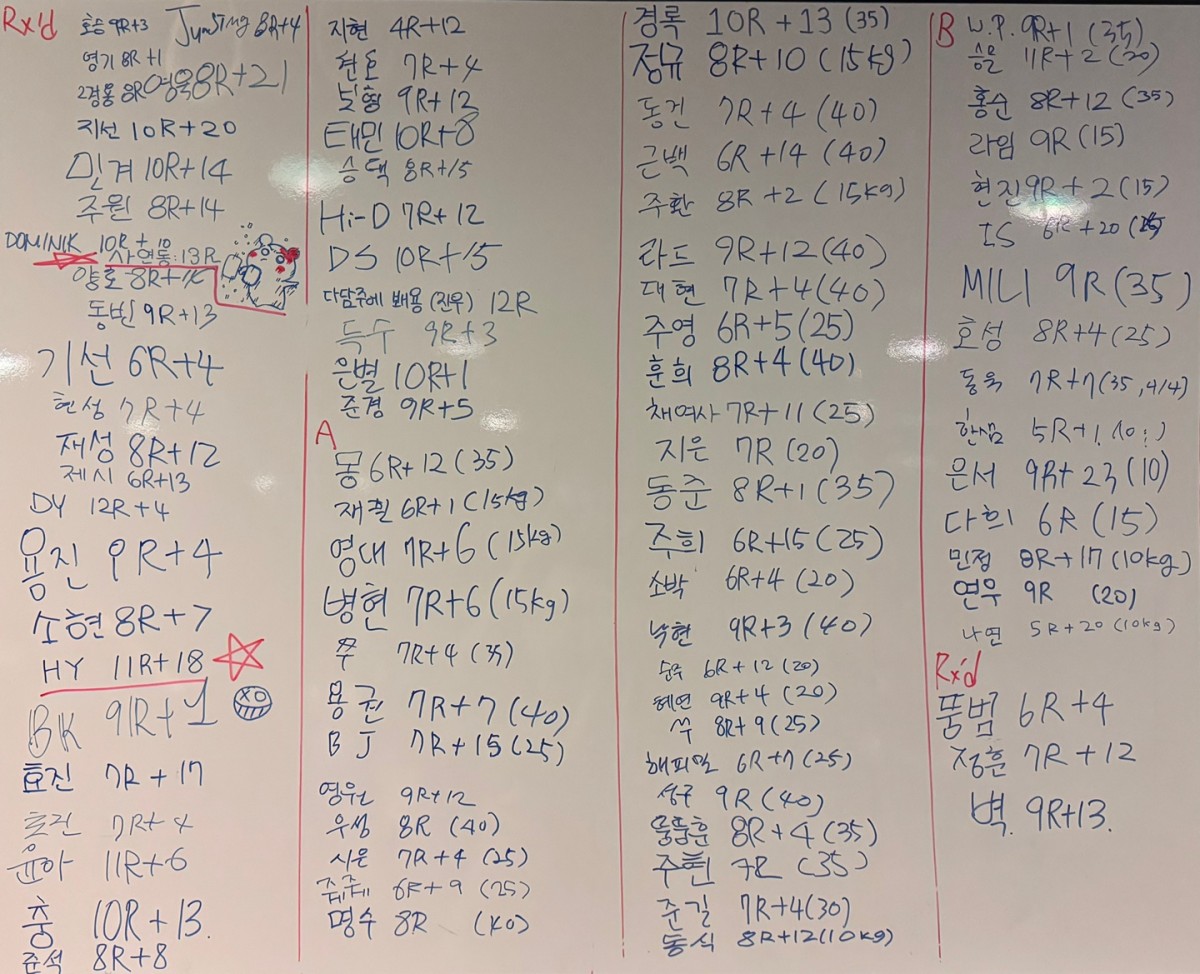 Rx'd
호승 9R+3 JunSing 8R+4
영기 8R+1
2경몽 8R 영욱 8R+21
지선 10R+20
민겨 10R+14
주원 8R+14
DOMINIK 10R+10
사연동:13R
양호 8R+15
동빈 9R+13
기선 6R+4
현성 7R+4
재성 8R+12
제시 6R+13
DY 12R+4
용진 9R+4
소현 8R+7
HY 11R+18
BK 9R+1
효진 7R+17
효건 7R+4
윤아 11R+6
충 10R+13.
준석 8R+8
지현 4R+12
현호 7R+4
보형 9R+12
태민 10R+8
승택 8R+15
Hi-D 7R+12
DS 10R+15
다담주에 봬용 (진우) 12R
득수 9R+3
은별 10R+1
준경 9R+5
A
몽 6R+12 (35)
재휠 6R+1 (15kg)
영대 7R+6 (15kg)
병현 7R+6 (15kg)
쭈 7R+4 (35)
용권 7R+7 (40)
BJ 7R+15 (25)
영원 9R+12
우성 8R (40)
시은 7R+4 (25)
쥬쥬 6R+9 (25)
명수 8R (40)
경록 10R+13 (35)
정규 8R+10 (15kg)
동건 7R+4 (40)
근백 6R+14 (40)
주환 8R+2 (15kg)
라드 9R+12 (40)
대현 7R+4 (40)
주영 6R+5 (25)
훈희 8R+4 (40)
채여사 7R+11 (25)
지은 7R (20)
동준 8R+1 (35)
주희 6R+15 (25)
소박 6R+4 (20)
낙현 9R+3 (40)
순주 6R+12 (20)
혜연 9R+4 (20)
쑤 8R+9 (25)
해피밀 6R+7 (25)
성구 9R (40)
뚱뚱훈 8R+4 (35)
주현 7R (35)
준길 7R+4 (30)
동식 8R+12 (10kg)
B W.P. 9R+1 (35)
승은 11R+2 (20)
홍순 8R+12 (35)
라임 9R (15)
현진 9R+2 (15)
IS 6R+20
MILI 9R (35)
호성 8R+4 (25)
동욱 7R+7 (35, 4/4)
한샘 5R+1
은서 9R+23 (10)
다희 6R (15)
민정 8R+17 (10kg)
연우 9R (20)
나연 5R+20 (10kg)
Rx'd
뚱범 6R+4
정훈 7R+12
벽. 9R+13.